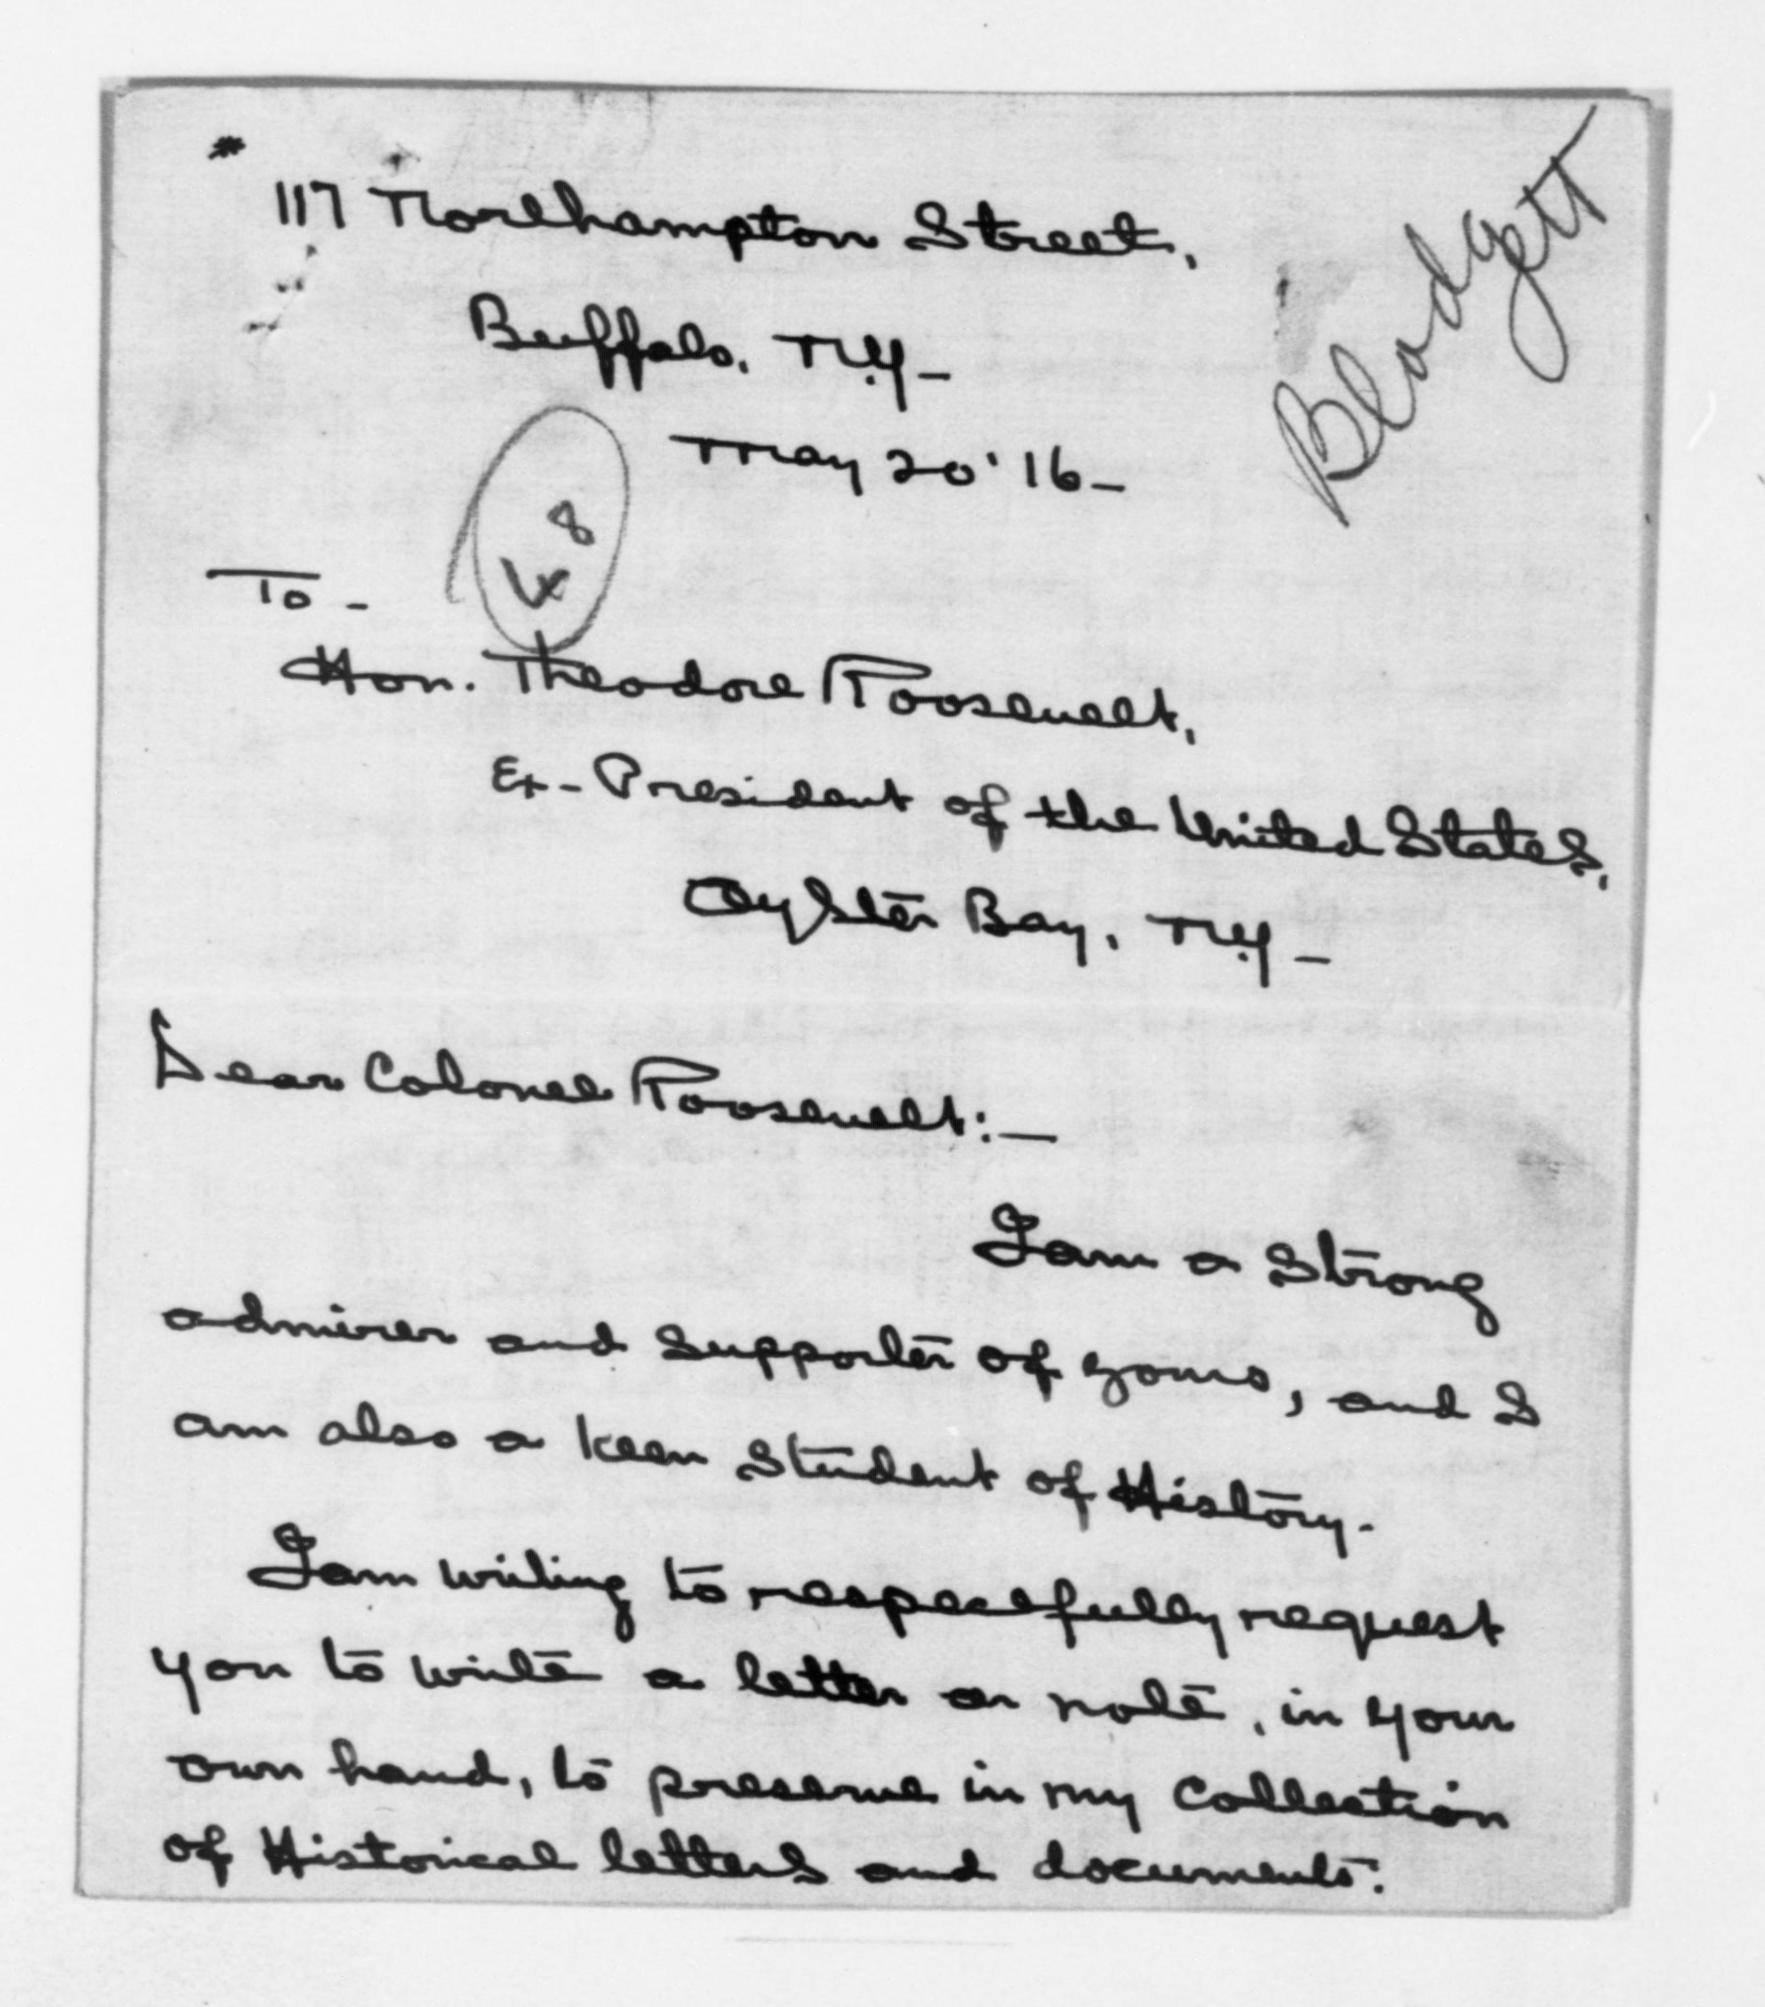 117 Northampton Street,
Buffalo, N.Y-
May 20 '16-
Blodgett
48
To-
Hon. Theodore Roosevelt,
Ex-President of the United States,
Oyster Bay, N.Y-
Dear Colonel Roosevelt:-
I am a strong
admirer and supporter of yours, and I
am also a keen student of History.
I am writing to respectfully request
you to write a letter or note, in your
own hand, to preserve in my collection
of Historical letters and documents: